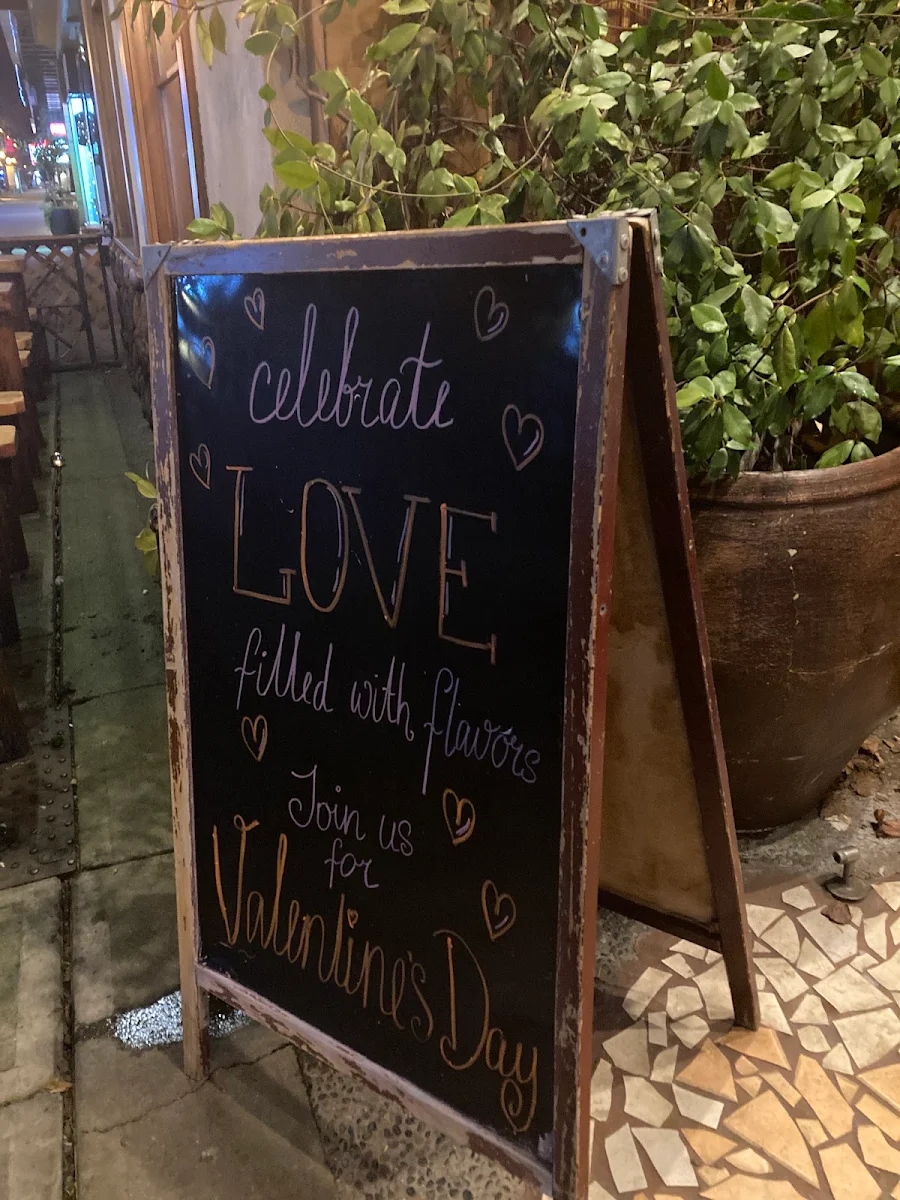 celebrate
LOVE
filled with flavors
Join us
for
Valentine's Day